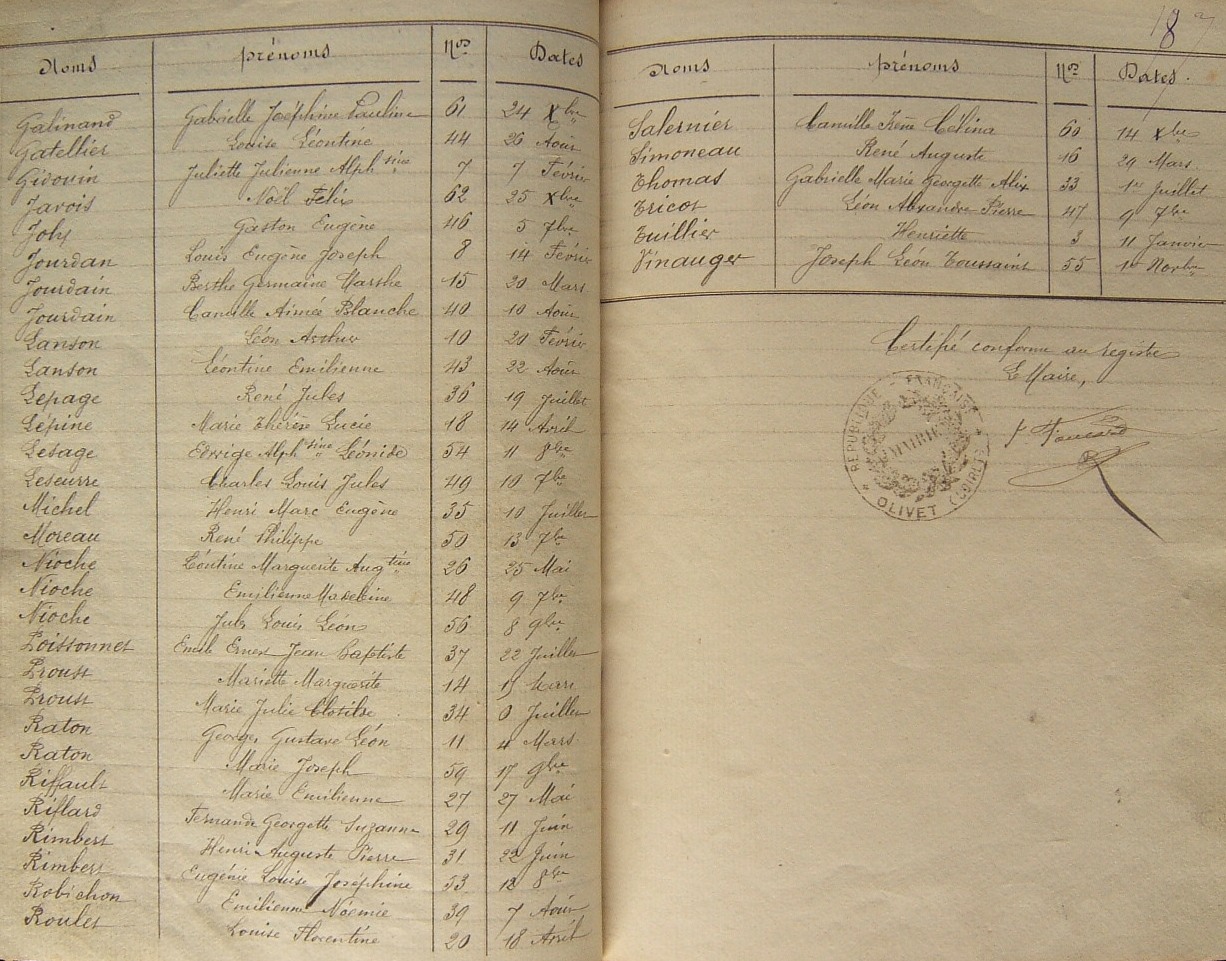 Noms prénoms Nos Dates
Galinand Gabrielle Joséphine Pauline 61 24 Xbre
Gatellier Louise Léontine 44 26 Août
Gidouin Juliette Julienne Alphsine 7 7 Février
Javois Noël Félix 62 25 Xbre
Joly Gaston Eugène 46 5 7bre
Jourdan Louis Eugène Joseph 8 14 Février
Jourdain Berthe Germaine Marthe 15 20 Mars
Jourdain Camille Aimée Blanche 40 10 Août
Lanson Léon Arthur 10 20 Février
Lanson Léontine Emilienne 43 22 Août
Lepage René Jules 36 19 Juillet
Lépine Marie Thérèse Lucie 18 14 Avril
Lesage Edwige Alphsine Léonide 54 11 8bre
Leseurre Charles Louis Jules 49 10 7bre
Michel Henri Marc Eugène 35 10 Juillet
Moreau René Philippe 50 13 7bre
Nioche Léontine Marguerite Augtine 26 25 Mai
Nioche Emilienne Madeleine 48 9 7bre
Nioche Jules Louis Léon 56 8 9bre
Poissonnet Emile Ernest Jean Baptiste 37 22 Juillet
Proust Mariette Marguerite 14 Mars
Proust Marie Julie Clotilde 34 Juillet
Raton Georges Gustave Léon 11 4 Mars
Raton Marie Joseph 59 17 9bre
Riffault Marie Emilienne 27 27 Mai
Riflard Fernande Georgette Suzanne 29 11 Juin
Rimbert Henri Auguste Pierre 31 22 Juin
Rimbert Eugénie Louise Joséphine 53 8bre
Robichon Emilienne Noémie 39 7 Août
Roulet Louise Florentine 20 18 Avril
Noms prénoms Nos Dates.
Salernier Camille Irène Célina 60 14 Xbre
Simoneau René Auguste 16 29 Mars
Thomas Gabrielle Marie Georgette Alix 33 1er Juillet
Tricot Léon Alexandre Pierre 47 9 7bre
Tuillier Henriette 3 11 Janvier
Vinauger Joseph Léon Toussaint 55 1er Novbre
Certifié conforme au registre
Le Maire,
REPUBLIQUE - FRANÇAISE
MAIRIE
OLIVET (LOIRET)